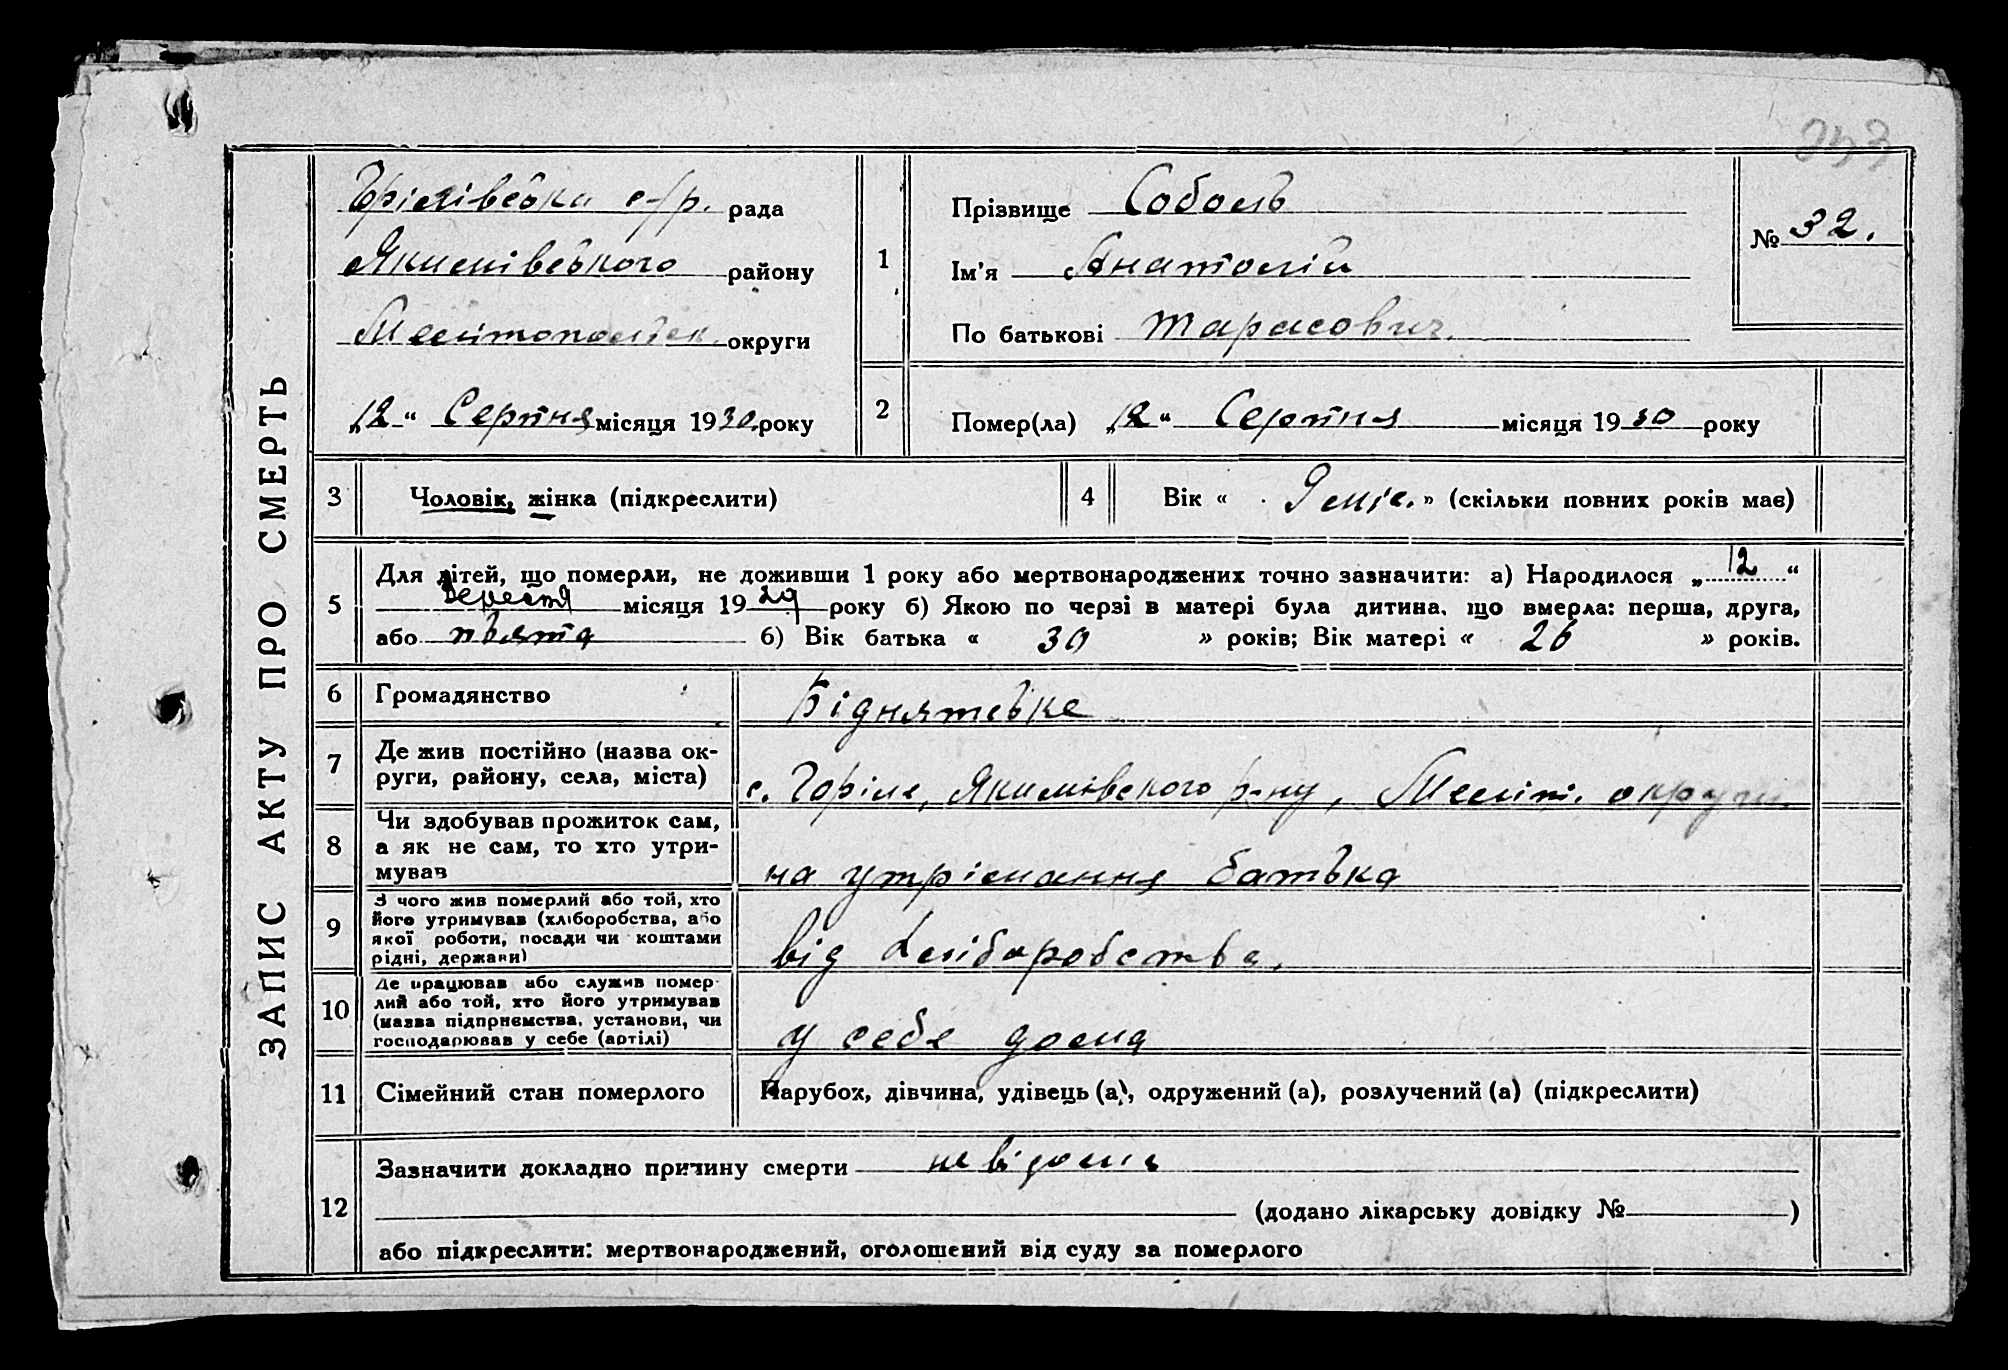 ЗАПИС АКТУ ПРО СМЕРТЬ
Горілівська с/р. рада
Якимівського району
Мелітопольськ округи
„12“ Серпня місяця 1930 року
1
Прізвище Соболь
Ім'я Анатолій
По батькові Тарасович.
№ 32.
2
Помер(ла) „12“ Серпня місяця 1930 року
3 Чоловік, жінка (підкреслити)
4 Вік « 9 міс. » (скільки повних років має)
5
Для дітей, що померли, не доживши 1 року або мертвонароджених точно зазначити: а) Народилося „12“
Вересня місяця 1929 року б) Якою по черзі в матері була дитина, що вмерла: перша, друга,
або пьята б) Вік батька « 30 » років; Вік матері « 26 » років.
6 Громадянство Біднятське
7 Де жив постійно (назва ок-
руги, району, села, міста)
с. Горіле, Якимівського р-ну, Меліт. округи
8 Чи здобував прожиток сам,
а як не сам, то хто утри-
мував
на утрімання батька
9 З чого жив померлий або той, хто
його утримував (хліборобства, або
якої роботи, посади чи коштами
рідні, держави)
від хліборобства.
10 Де працював або служив помер-
лий або той, хто його утримував
(назва підприємства, установи, чи
господарював у себе (артілі)
у себе дома
11 Сімейний стан померлого Парубок, дівчина, удівець (а), одружений (а), розлучений (а) (підкреслити)
12
Зазначити докладно причину смерти невідома
(додано лікарську довідку № )
або підкреслити: мертвонароджений, оголошений від суду за померлого